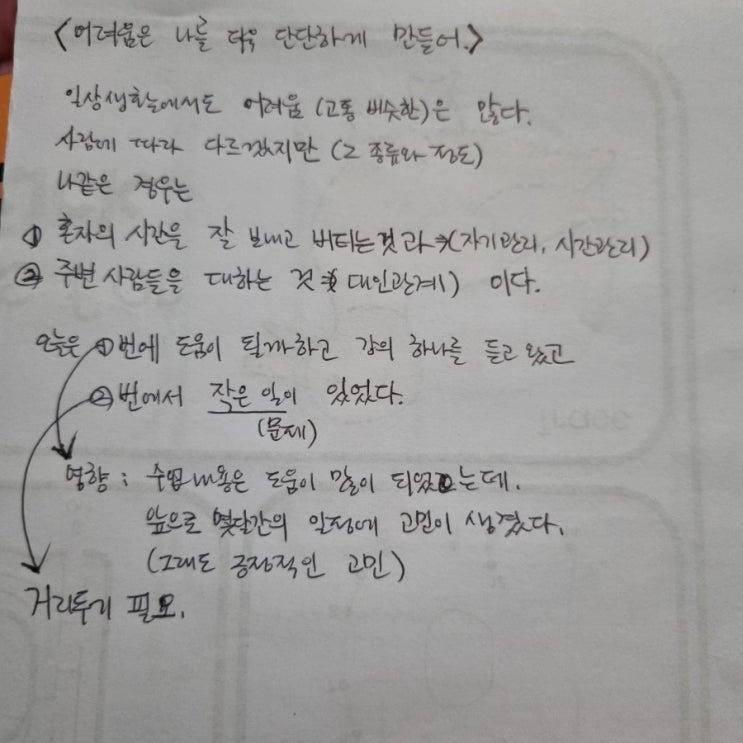 <어려움은 나를 더욱 단단하게 만들어.>
일상생활에서도 어려움 (고통 비슷한)은 많다.
사람에 따라 다르겠지만 (그 종류와 정도)
나같은 경우는
① 혼자의 시간을 잘 보내고 버티는것과 (자기관리, 시간관리)
② 주변 사람들을 대하는 것 (대인관계) 이다.
오늘은 ①번에 도움이 될까하고 강의 하나를 듣고 왔고
②번에서 작은 일이 있었다.
(문제)
영향 : 수업내용은 도움이 많이 되었는데.
앞으로 몇달간의 일정에 고민이 생겼다.
(그래도 긍정적인 고민)
거리두기 필요.